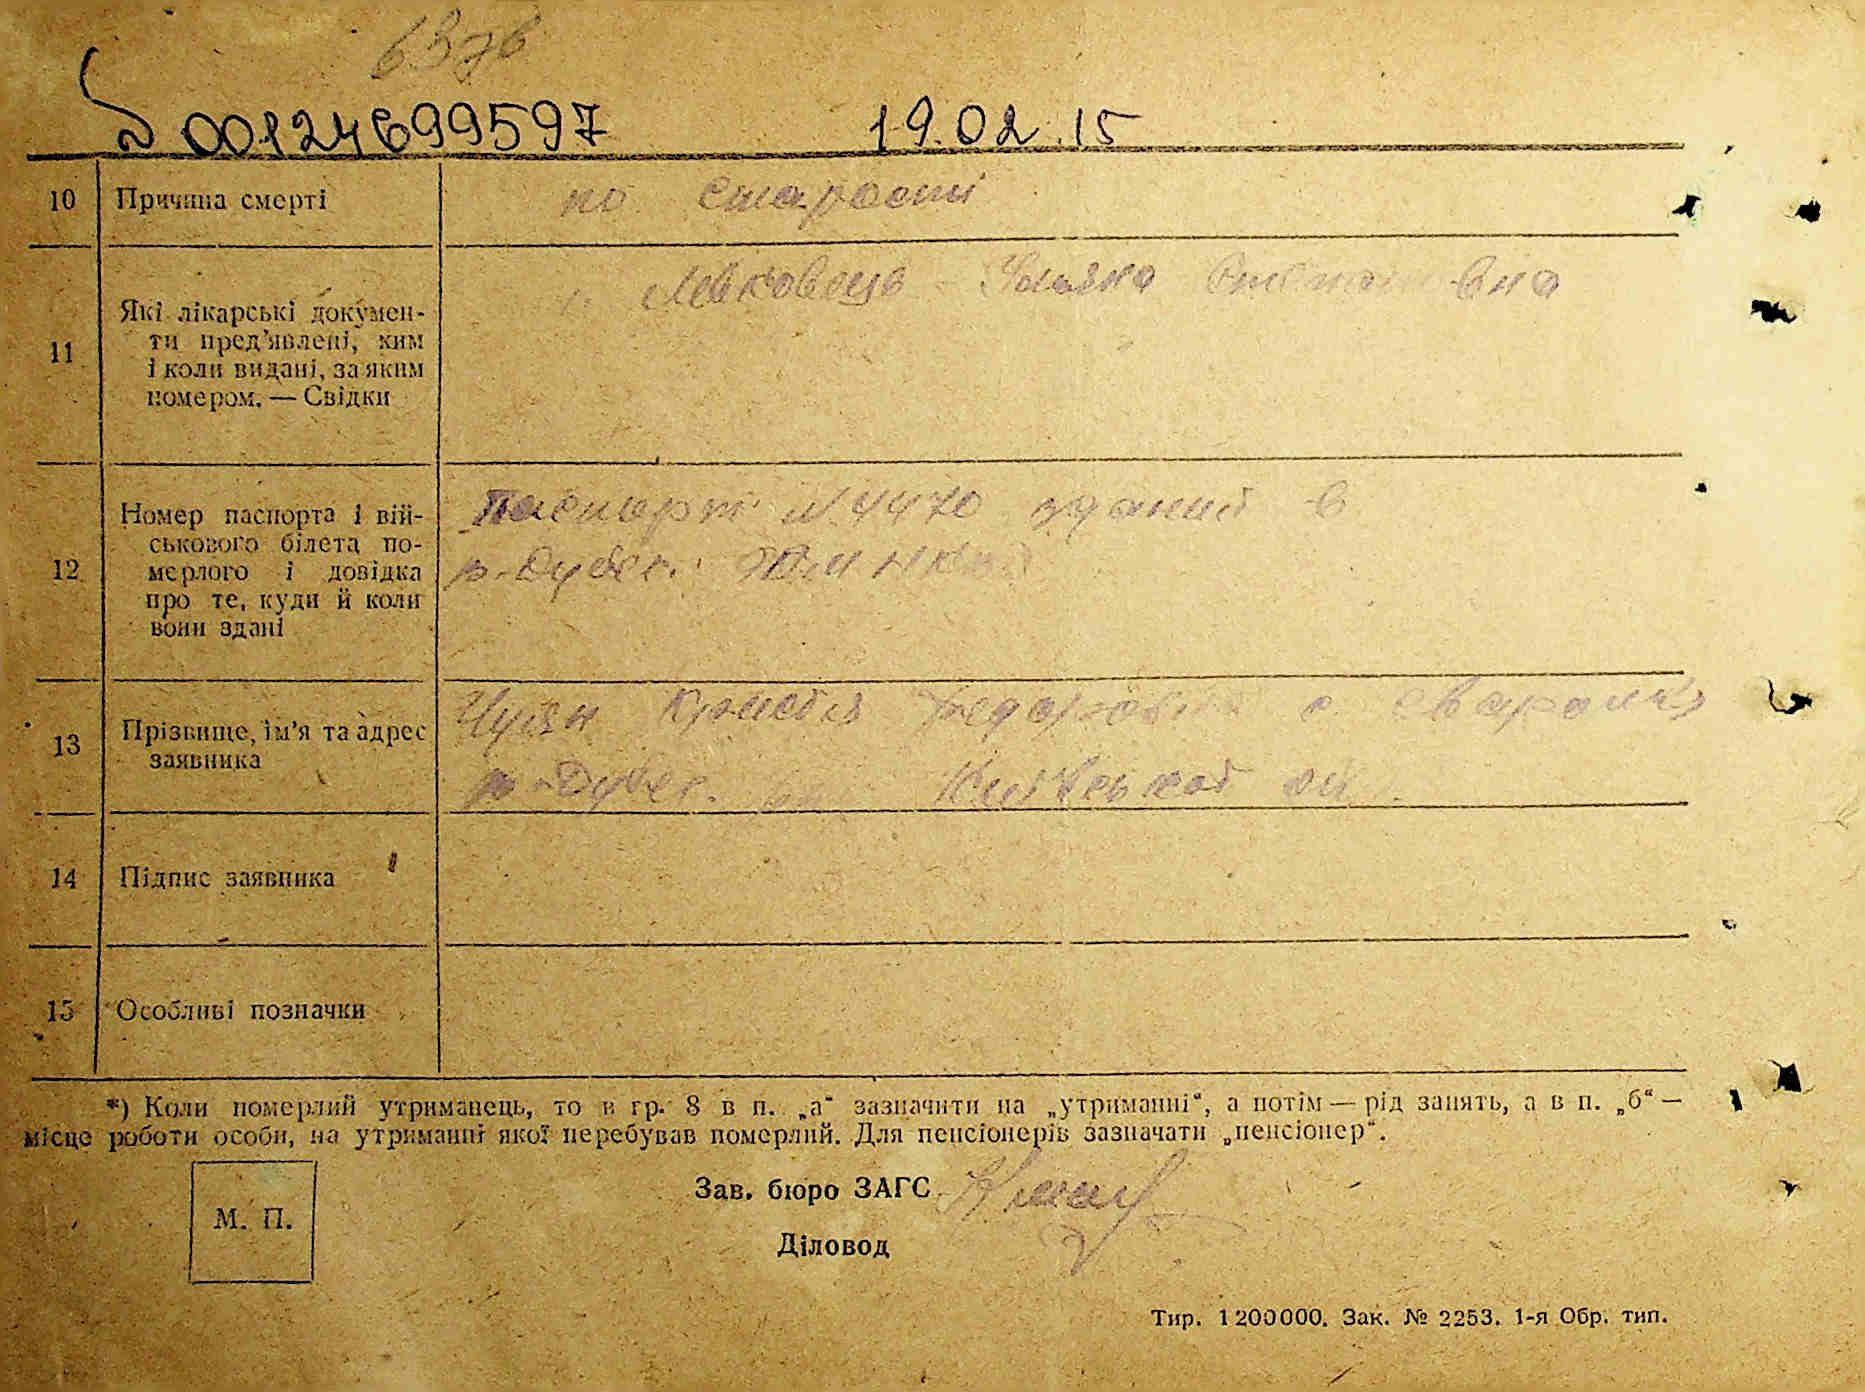 00124699597 19.02.15
10 Причина смерті по старості
11 Які лікарські докумен-
ти пред'явлені, ким
і коли видані, за яким
номером. — Свідки
12 Номер паспорта і вій-
ськового білета по-
мерлого і довідка
про те, куди й коли
вони здані
Паспорт №4470 зданий в
р-Дубеч.
13 Прізвище, ім'я та адрес
заявника
р-Дубеч. Київської
14 Підпис заявника
15 Особливі позначки
*) Коли померлий утриманець, то в гр. 8 в п. „а“ зазначити на „утриманні“, а потім — рід занять, а в п. „б“ —
місце роботи особи, на утриманні якої перебував померлий. Для пенсіонерів зазначати „пенсіонер“.
М. П.
Зав. бюро ЗАГС
Діловод
Тир. 1200000. Зак. № 2253. 1-я Обр. тип.